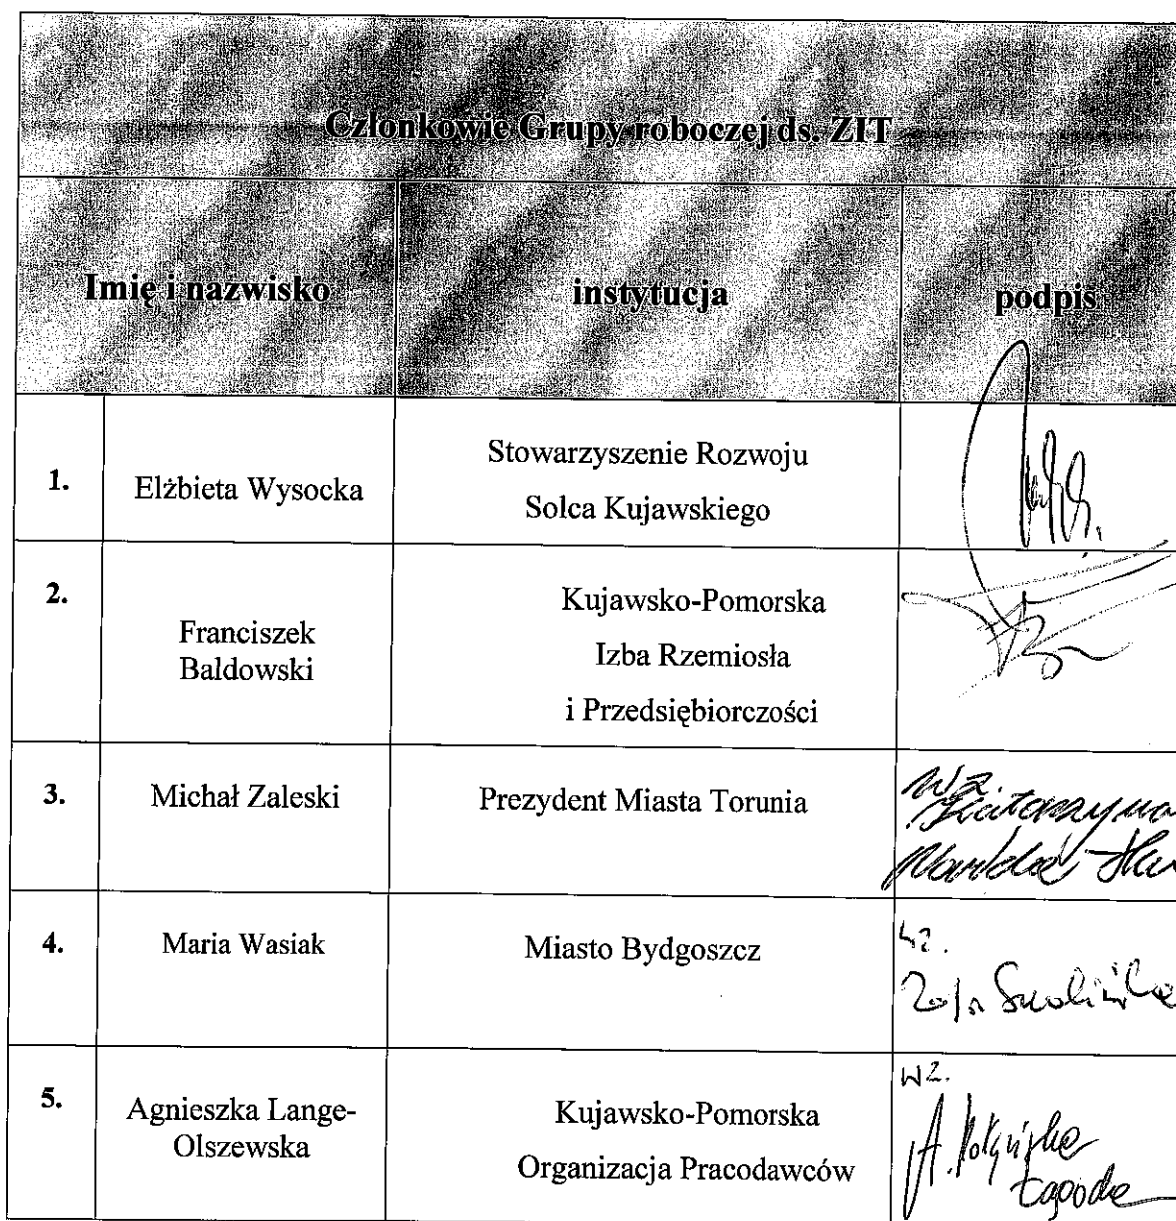 Członkowie Grupy roboczej ds. ZIT
Imię i nazwisko instytucja podpis
1. Elżbieta Wysocka Stowarzyszenie Rozwoju
Solca Kujawskiego
2. Franciszek
Baldowski
Kujawsko-Pomorska
Izba Rzemiosła
i Przedsiębiorczości
3. Michał Zaleski Prezydent Miasta Torunia
wz. Katarzyna
4. Maria Wasiak Miasto Bydgoszcz
wz.
5. Agnieszka Lange-
Olszewska
Kujawsko-Pomorska
Organizacja Pracodawców
wz.
A.